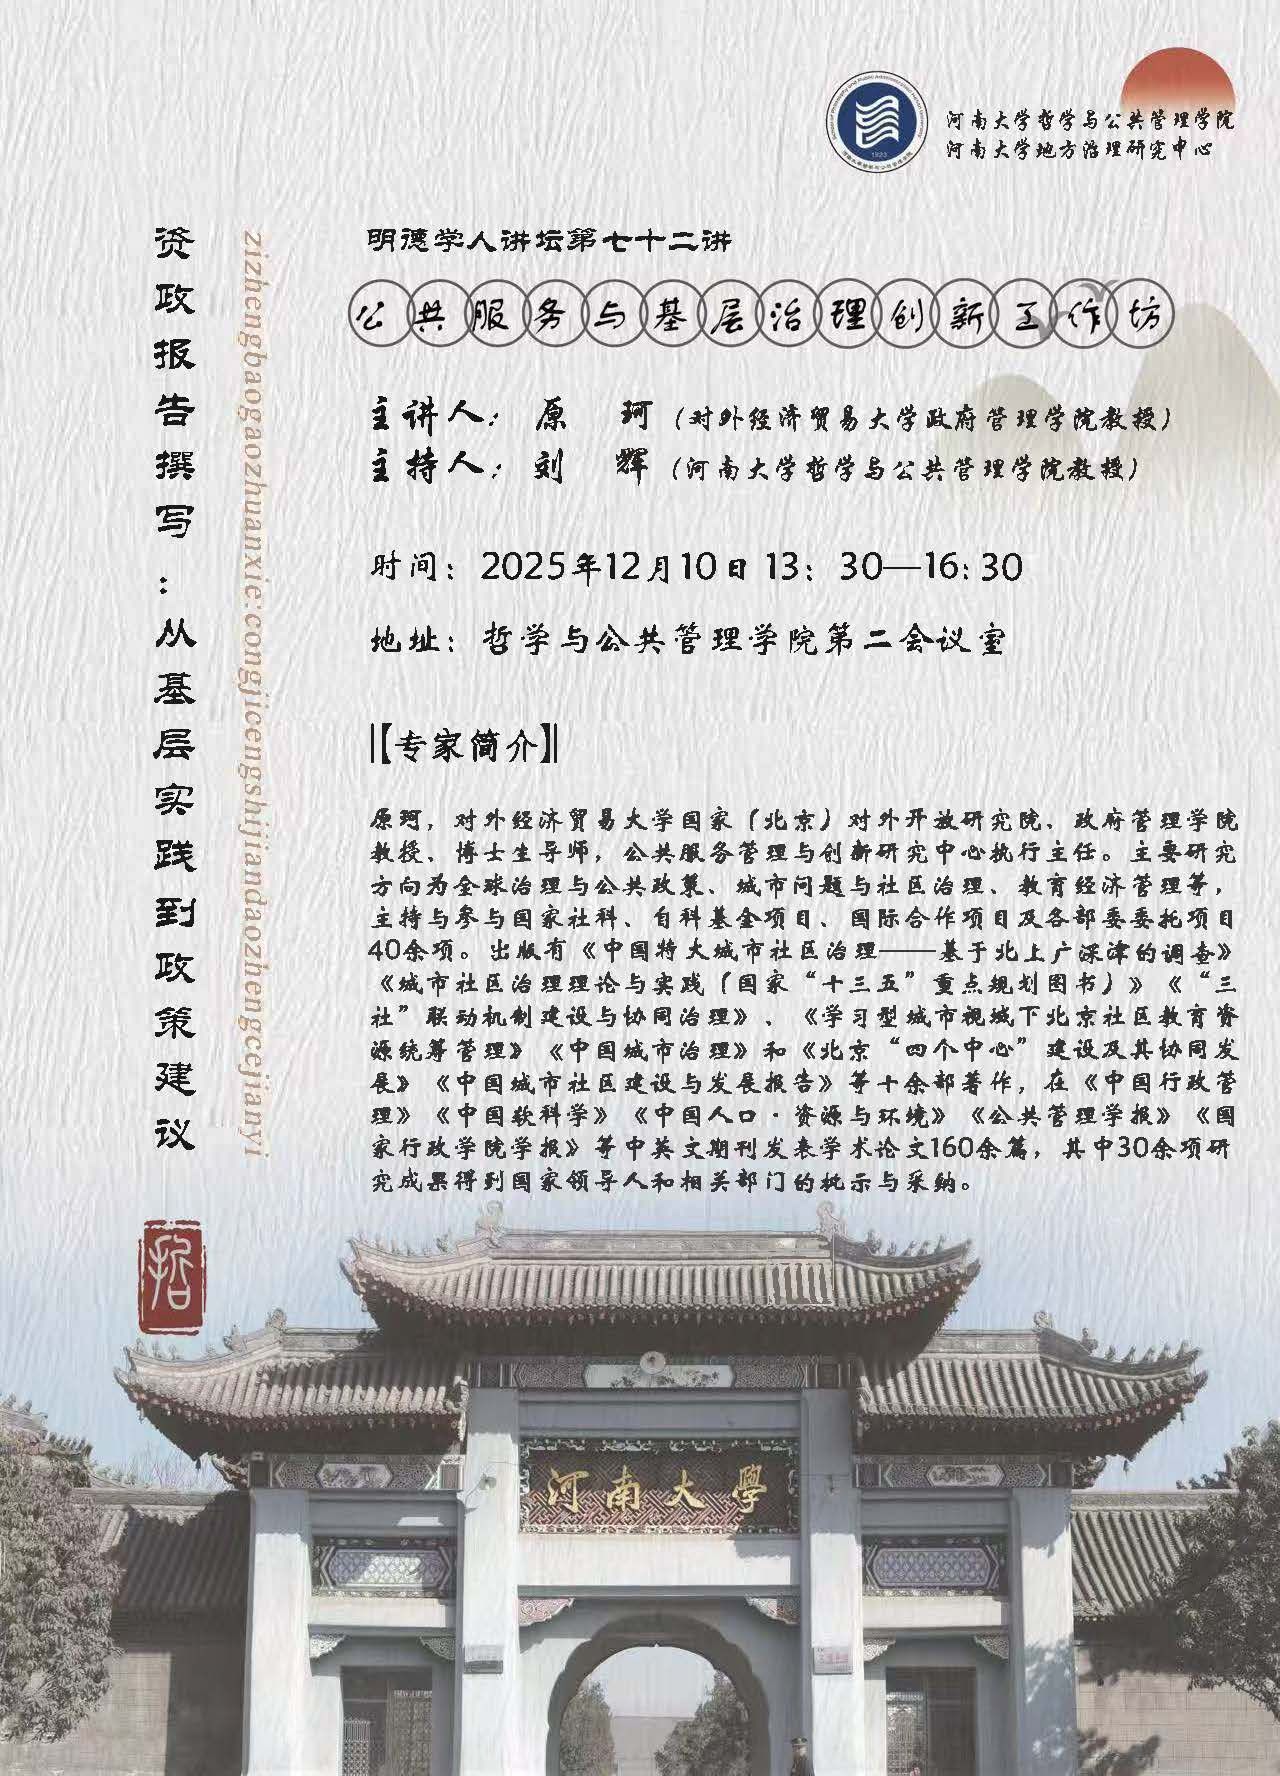 河南大学哲学与公共管理学院
河南大学地方治理研究中心
1923
资政报告撰写：从基层实践到政策建议
zizhengbaogaozhuanxie:congjicengshijiandaozhengcejianyi
明德学人讲坛第七十二讲
公共服务与基层治理创新工作坊
主讲人：原 珂（对外经济贸易大学政府管理学院教授）
主持人：刘 辉（河南大学哲学与公共管理学院教授）
时间：2025年12月10日 13：30—16:30
地址：哲学与公共管理学院第二会议室
【专家简介】
原珂，对外经济贸易大学国家（北京）对外开放研究院、政府管理学院
教授、博士生导师，公共服务管理与创新研究中心执行主任。主要研究
方向为全球治理与公共政策、城市问题与社区治理、教育经济管理等，
主持与参与国家社科、自科基金项目、国际合作项目及各部委委托项目
40余项。出版有《中国特大城市社区治理——基于北上广深津的调查》
《城市社区治理理论与实践（国家“十三五”重点规划图书）》《“三
社”联动机制建设与协同治理》、《学习型城市视域下北京社区教育资
源统筹管理》《中国城市治理》和《北京“四个中心”建设及其协同发
展》《中国城市社区建设与发展报告》等十余部著作，在《中国行政管
理》《中国软科学》《中国人口·资源与环境》《公共管理学报》《国
家行政学院学报》等中英文期刊发表学术论文160余篇，其中30余项研
究成果得到国家领导人和相关部门的批示与采纳。
哲
河南大學